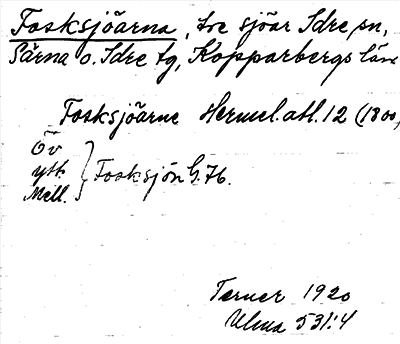 Fosksjöarna, tre sjöar Idre sn,
Särna o. Idre tg, Kopparbergs län
Fosksjöarne Hermel. atl. 12 (1800,
Öv
ytt. } Fosksjön G. 76.
Mell.
Terner 1920
Ulma 531:4